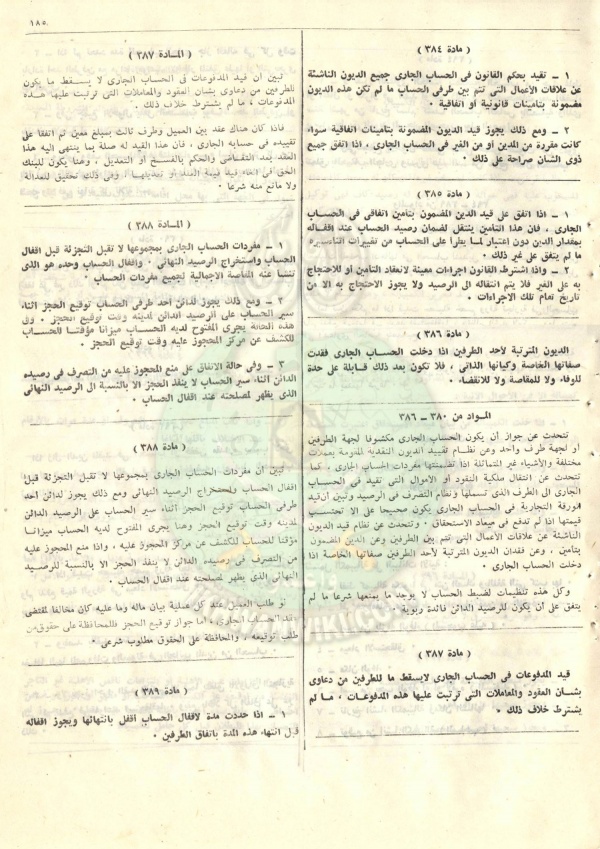 ١٨٥
( مادة ٣٨٤ )
١ ــ تقيد بحكم القانون فى الحساب الجارى جميع الديون الناشئة
عن علاقات الأعمال التى تتم بين طرفى الحساب ما لم تكن هذه الديون
مضمونة بتامينات قانونية أو اتفاقية .
٢ ــ ومع ذلك يجوز قيد الديون المضمونة بتامينات اتفاقية سواء
كانت مقررة من المدين أو من الغير فى الحساب الجارى ، اذا اتفق جميع
ذوى الشان صراحة على ذلك .
( مادة ٣٨٥ )
١ ــ اذا اتفق على قيد الدين المضمون بتامين اتفاقى فى الحساب
الجارى ، فان هذا التامين ينتقل لضمان رصيد الحساب عند اقفاله
بمقدار الدين دون اعتبار لما يطرأ على الحساب من تغييرات
ما لم يتفق على غير ذلك .
٢ ــ واذا اشترط القانون اجراءات معينة لانعقاد التامين أو للاحتجاج
به على الغير فلا يتم انتقاله الى الرصيد ولا يجوز الاحتجاج به الا من
تاريخ تمام تلك الاجراءات .
( مادة ٣٨٦ )
الديون المترتبة لأحد الطرفين اذا دخلت الحساب الجارى فقدت
صفاتها الخاصة وكيانها الذاتى ، فلا تكون بعد ذلك قابلة على حدة
للوفاء ولا للمقاصة ولا للانقضاء .
المواد من ٣٨٠ ــ ٣٨٦
تتحدث عن جواز أن يكون الحساب الجارى مكشوفا لجهة الطرفين
أو لجهة طرف واحد وعن نظام تقييد الديون النقدية المقومة بعملات
مختلفة والأشياء غير المتماثلة اذا تضمنتها مفردات الحساب الجارى ، كما
تتحدث عن انتقال ملكية النقود أو الأموال التى تقيد فى الحساب
الجارى الى الطرف الذى تسلمها ونظام التصرف فى الرصيد وتبين أن قيد
الورقة التجارية فى الحساب الجارى يكون صحيحا على الا تحتسب
قيمتها اذا لم تدفع فى ميعاد الاستحقاق . وتتحدث عن نظام قيد الديون
الناشئة عن علاقات الأعمال التى تتم بين الطرفين وعن الديون المضمونة
بتامين ، وعن فقدان الديون المترتبة لأحد الطرفين صفاتها الخاصة اذا
دخلت الحساب الجارى .
وكل هذه تنظيمات لضبط الحساب لا يوجد ما يمنعها شرعا ما لم
يتفق على أن يكون للرصيد الدائن فائدة ربوية .
( مادة ٣٨٧ )
قيد المدفوعات فى الحساب الجارى لايسقط ما للطرفين من دعاوى
بشان العقود والمعاملات التى ترتبت عليها هذه المدفوعات ، ما لم
يشترط خلاف ذلك .
( المادة ٣٨٧ )
تبين أن قيد المدفوعات فى الحساب الجارى لا يسقط ما يكون
للطرفين من دعاوى بشان العقود والمعاملات التى ترتبت عليها هذه
المدفوعات ، ما لم يشترط خلاف ذلك .
فاذا كان هناك عقد بين العميل وطرف ثالث بمبلغ معين تم اتفقا على
تقييده فى حسابه الجارى ، فان هذا القيد له صلة بما ينتهى اليه هذا
العقد بعد التقاضى والحكم بالفسخ أو التعديل ، وهنا يكون للبنك
الحق فى الغاء قيد قيمة العقد أو تعديلها ، وفى ذلك تحقيق للعدالة
ولا مانع منه شرعا .
( المادة ٣٨٨ )
١ ــ مفردات الحساب الجارى بمجموعها لا تقبل التجزئة قبل اقفال
الحساب واستخراج الرصيد النهائى . واقفال الحساب وحده هو الذى
تنشا عنه المقاصة الاجمالية لجميع مفردات الحساب .
٢ ــ ومع ذلك يجوز لدائن أحد طرفى الحساب توقيع الحجز أثناء
سير الحساب على الرصيد الدائن لمدينه وقت توقيع الحجز . وفى
هذه الحالة يجرى المفتوح لديه الحساب ميزانا مؤقتا للحساب
للكشف عن مركز المحجوز عليه وقت توقيع الحجز .
٣ ــ وفى حالة الاتفاق على منع المحجوز عليه من التصرف فى رصيده
الدائن أثناء سير الحساب لا ينفذ الحجز الا بالنسبة الى الرصيد النهائى
الذى يظهر لمصلحته عند اقفال الحساب .
( مادة ٣٨٨ )
تبين أن مفردات الحساب الجارى بمجموعها لا تقبل التجزئة قبل
اقفال الحساب واستخراج الرصيد النهائى ومع ذلك يجوز لدائن أحد
طرفى الحساب توقيع الحجز أثناء سير الحساب على الرصيد الدائن
لمدينه وقت توقيع الحجز وهنا يجرى المفتوح لديه الحساب ميزانا
مؤقتا للحساب للكشف عن مركز المحجوز عليه ، واذا منع المحجوز عليه
من التصرف فى رصيده الدائن لا ينفذ الحجز الا بالنسبة للرصيد
النهائى الذى يظهر لمصلحته عند اقفال الحساب .
لو طلب العميل عند كل عملية بيان ماله وما عليه كان مخالفا لمقتضى
عقد الحساب الجارى ، أما جواز توقيع الحجز فللمحافظة على حقوق من
طلب توقيعه ، والمحافظة على الحقوق مطلوب شرعى .
( مادة ٣٨٩ )
١ ــ اذا حددت مدة لاقفال الحساب أقفل بانتهائها ويجوز اقفاله
قبل انتهاء هذه المدة باتفاق الطرفين .